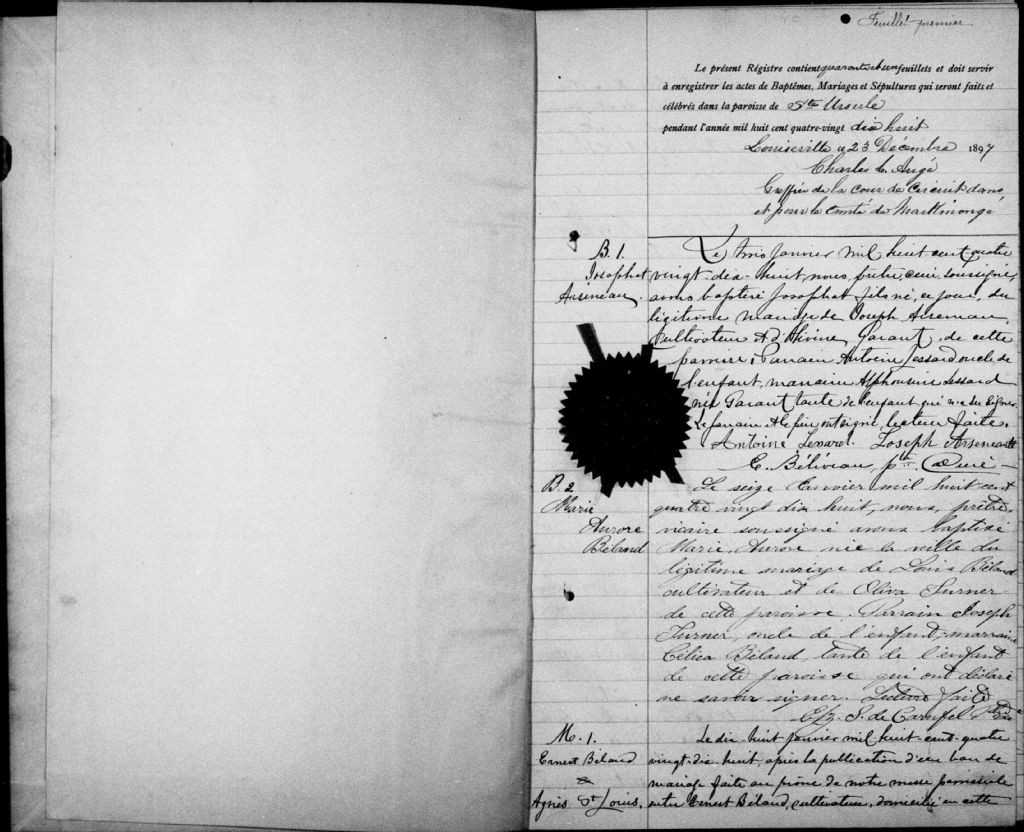 Feuillet premier
Le présent Régistre contient quarante et un feuillets et doit servir
à enregistrer les actes de Baptêmes, Mariages et Sépultures qui seront faits et
célébrés dans la paroisse de Ste Ursule
pendant l'année mil huit cent quatre-vingt dix huit
Louiseville 23 Décembre 1897
Charles L. Augé
Greffier de la cour de Circuit dans
et pour le comté de Maskinongé
B. 1.
Josephat
Arseneau.
Le trois janvier mil huit-cent-quatre
vingt-dix-huit, nous, prêtre, curé, soussigné,
avons baptisé Josaphat fils né, ce jour, du
légitime mariage de Joseph Arseneau,
cultivateur et d'Alvine Garant, de cette
paroisse; Parrain Antoine Lessard oncle de
l'enfant, marraine Alphonsine Lessard
née Garant tante de l'enfant qui n'a su signer.
Le parrain et le père ont signé, lecture faite.
Antoine Lessard. Joseph Arseneault
E. Béliveau ptre Curé
B. 2
Marie
Aurore
Béland
Le seize Janvier mil huit cent
quatre vingt dix huit, nous, prêtre,
vicaire soussigné avons baptisé
Marie Aurore née la veille du
légitime mariage de Louis Béland
cultivateur et de Oliva Turner
de cette paroisse. Parrain Joseph
Turner, oncle de l'enfant, marraine
Célica Béland, tante de l'enfant
de cette paroisse qui ont déclaré
ne savoir signer. Lecture faite
S. de Carufel Ptre
M. 1.
Ernest Béland
&
Agnès St Louis.
Le dix-huit janvier mil huit-cent-quatre
vingt-dix-huit, après la publication d'un ban de
mariage faite au prône de notre messe paroissiale
entre Ernest Béland, cultivateur, domicilié en cette